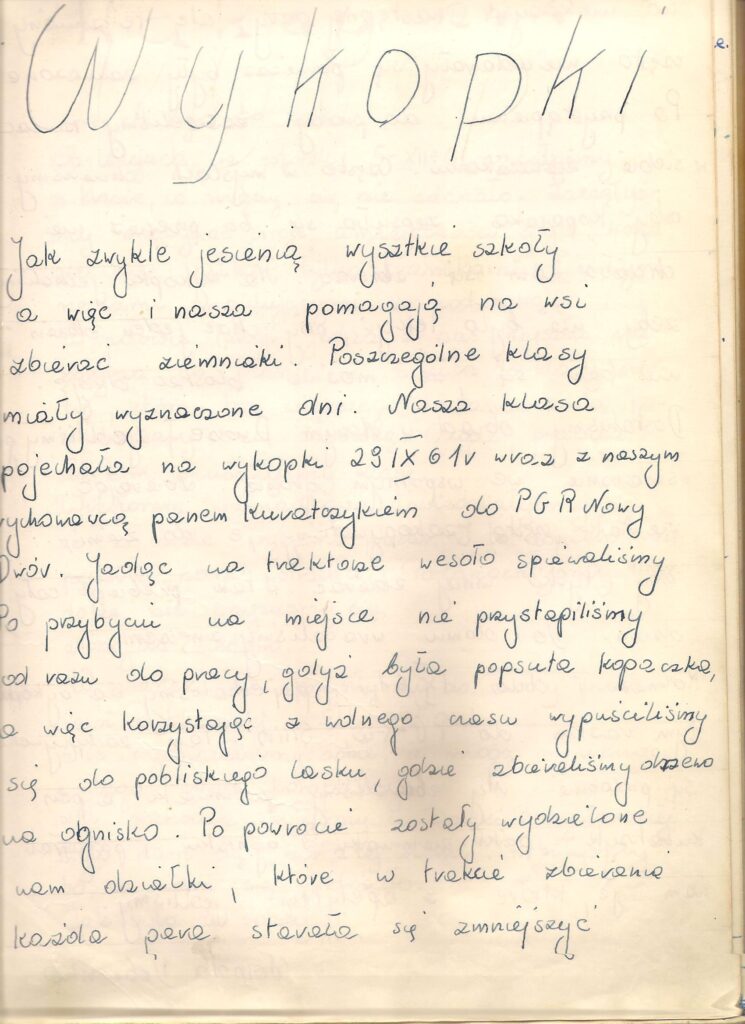 Wykopki
e.
Jak zwykle jesienią wysztkie szkoły
a więc i nasza pomagają na wsi
zbierać ziemniaki. Poszczególne klasy
miały wyznaczone dni. Nasza klasa
pojechała na wykopki 29 IX 61r wraz z naszym
wychowawcą panem Kuratczykiem do PGR Nowy
Dwór. Jadąc na traktorze wesoło śpiewaliśmy
Po przybyciu na miejsce nie przystąpiliśmy
od razu do pracy, gdyż była popsuta kopaczka,
a więc korzystając z wolnego czasu wypuściliśmy
się do pobliskiego lasku, gdzie zbieraliśmy drzewo
na ognisko. Po powrocie zostały wydzielone
nam działki, które w trakcie zbierania
każda para starała się zmniejszyć